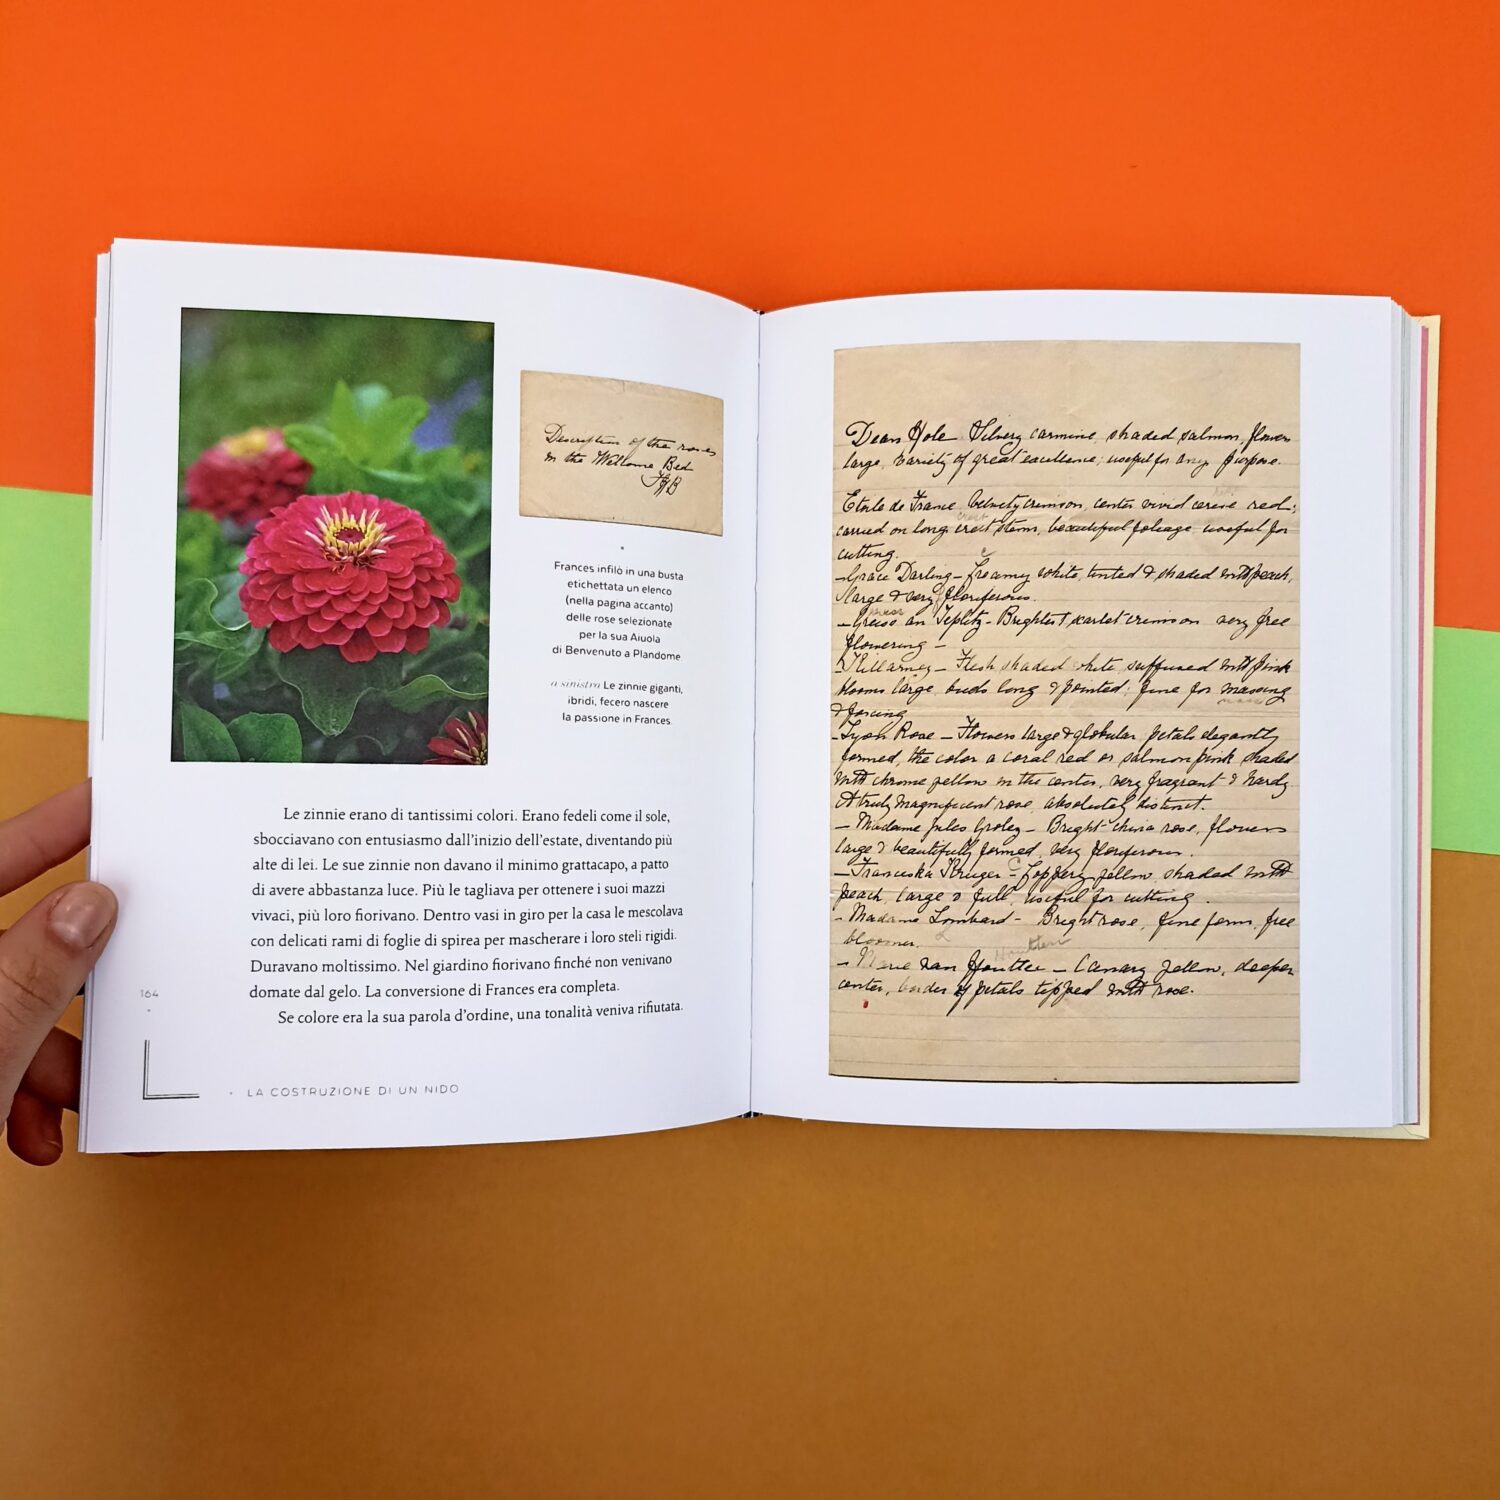 Description of the roses
in the Welcome Bed
FHB
Frances infilò in una busta
etichettata un elenco
(nella pagina accanto)
delle rose selezionate
per la sua Aiuola
di Benvenuto a Plandome
a sinistra Le zinnie giganti,
ibridi, fecero nascere
la passione in Frances.
Le zinnie erano di tantissimi colori. Erano fedeli come il sole,
sbocciavano con entusiasmo dall'inizio dell'estate, diventando più
alte di lei. Le sue zinnie non davano il minimo grattacapo, a patto
di avere abbastanza luce. Più le tagliava per ottenere i suoi mazzi
vivaci, più loro fiorivano. Dentro vasi in giro per la casa le mescolava
con delicati rami di foglie di spirea per mascherare i loro steli rigidi.
Duravano moltissimo. Nel giardino fiorivano finché non venivano
domate dal gelo. La conversione di Frances era completa.
Se colore era la sua parola d'ordine, una tonalità veniva rifiutata.
164
LA COSTRUZIONE DI UN NIDO
Dean Hole – Silvery carmine, shaded salmon, flowers
large, variety of great excellence; useful for any purpose.
Etoile de France Velvety crimson, center vivid cerise red;
carried on long, erect stem, beautiful foliage useful for
cutting.
– Grace Darling – Creamy white, tinted & shaded with peach,
large & very floriferous.
– an Teplitz – Brightest scarlet crimson very free
flowering –
– Killarney – Flesh shaded white suffused with pink
blooms large, buds long & pointed; fine for massing
& forcing
– Lyon Rose – Flowers large & globular, petals elegantly
formed, the color a coral red or salmon pink shaded
with chrome yellow in the center, very fragrant & hardy.
A truly magnificent rose, absolutely distinct.
– Madame Jules Groley – Bright china rose, flowers
large & beautifully formed, very floriferous.
– Franciska Kruger – Coppery yellow shaded with
peach, large & full, useful for cutting.
– Madame Lombard – Bright rose, fine form, free
bloomer.
– Marie van Houttee – Canary yellow, deeper
center, border of petals tipped with rose.